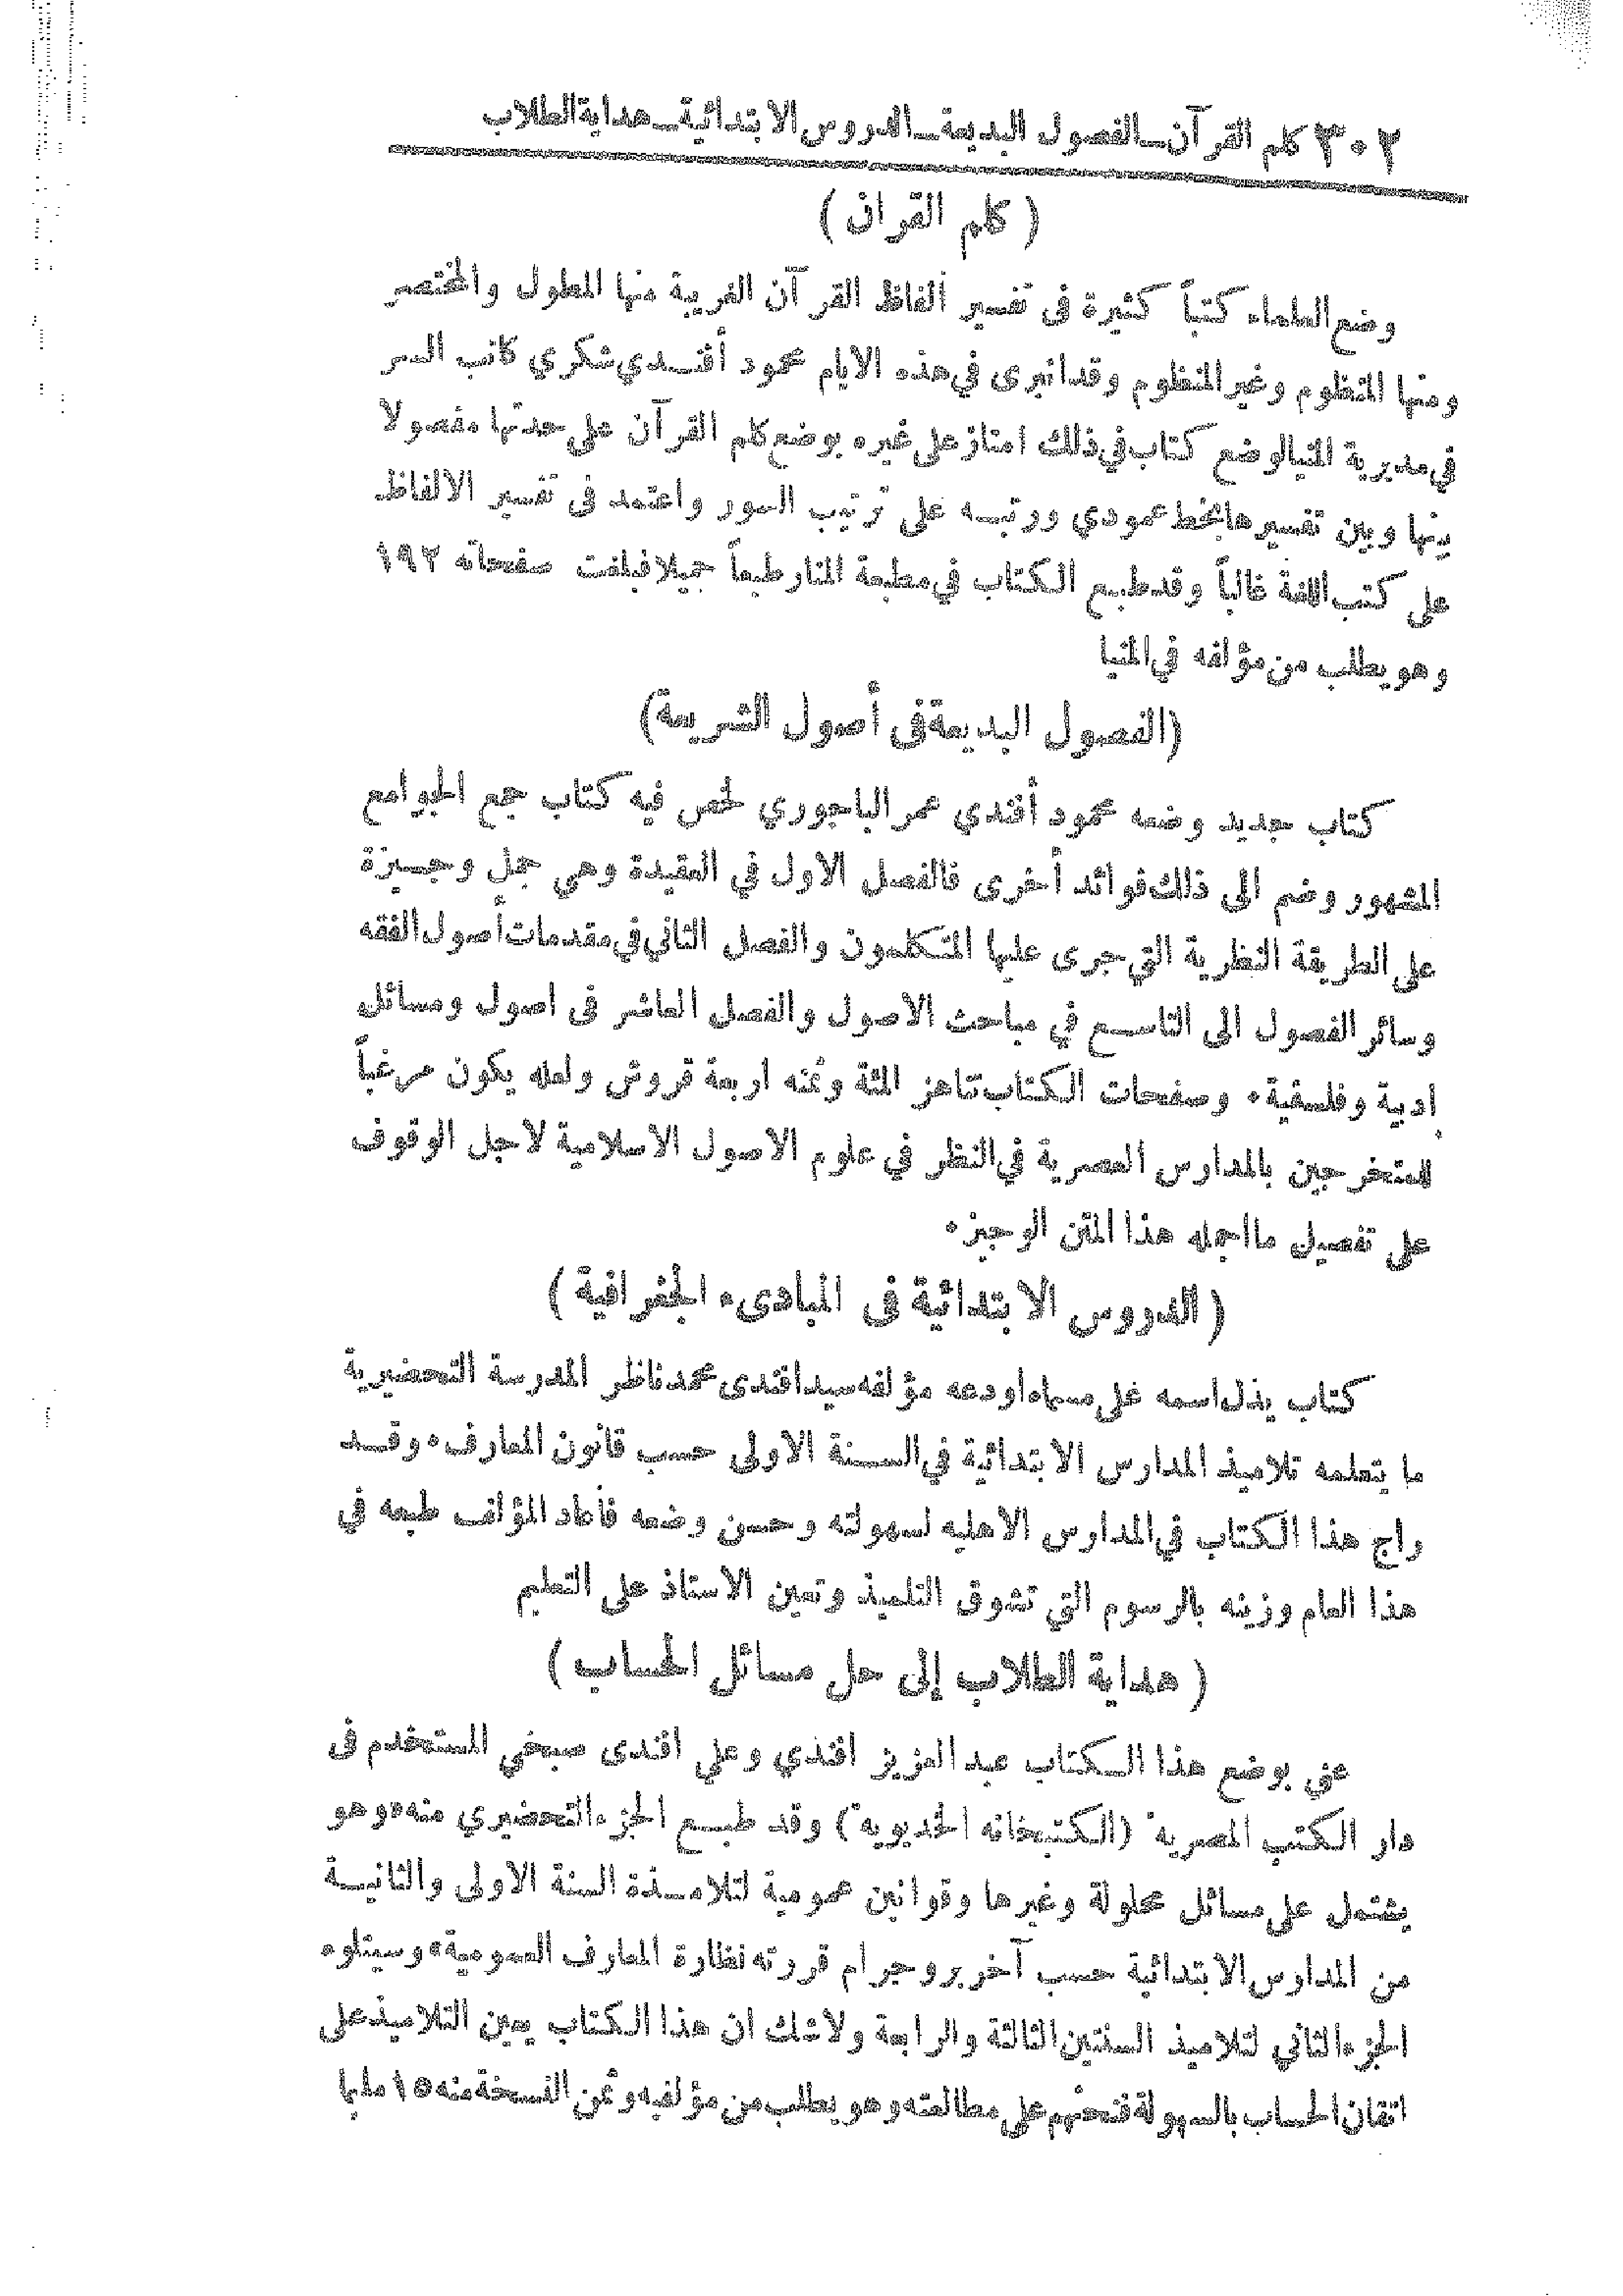 ٣٠٢ كلم القرآن ـ الفصول البديعة ـ الدروس الابتدائية ـ هداية الطلاب
( كلم القران )
وضع العلماء كتباً كثيرة فى تفسير ألفاظ القرآن الغريبة منها المطول والمختصر
ومنها المنظوم وغير المنظوم وقد انبرى في هذه الايام محمود أفندي شكري كاتب السر
في مديرية المنيا لوضع كتاب في ذلك امتاز على غيره بوضع كلم القرآن على حدتها مفصولا
بينها وبين تفسيرها بخط عمودي ورتبه على ترتيب السور واعتمد فى تفسير الالفاظ
على كتب اللغة غالباً وقد طبع الكتاب في مطبعة المنار طبعاً جميلا فبلغت صفحاته ١٩٢
وهو يطلب من مؤلفه في المنيا
(الفصول البديعة فى أصول الشريعة)
كتاب جديد وضعه محمود أفندي عمر الباجوري لخص فيه كتاب جمع الجوامع
المشهور وضم الى ذلك فوائد أخرى فالفصل الاول في العقيدة وهي جمل وجيزة
على الطريقة النظرية التي جرى عليها المتكلمون والفصل الثاني في مقدمات أصول الفقه
وسائر الفصول الى التاسع في مباحث الاصول والفصل العاشر فى اصول ومسائل
ادبية وفلسفية٠ وصفحات الكتاب تناهز المئة وثمنه اربعة قروش ولعله يكون مرغباً
للمتخرجين بالمدارس العصرية في النظر في علوم الاصول الاسلامية لاجل الوقوف
على تفصيل ما اجمله هذا المتن الوجيز٠
( الدروس الابتدائية فى المبادىء الجغرافية )
كتاب يذل اسمه على مسماه اودعه مؤلفه سيد افندى محمد ناظر المدرسة التحضيرية
ما يتعلمه تلاميذ المدارس الابتدائية في السنة الاولى حسب قانون المعارف٠ وقد
راج هذا الكتاب في المدارس الاهليه لسهولته وحسن وضعه فأعاد المؤلف طبعه في
هذا العام وزينه بالرسوم التي تشوق التلميذ وتعين الاستاذ على التعليم
( هداية الطلاب إلى حل مسائل الحساب )
عني بوضع هذا الكتاب عبد العزيز افندي وعلي افندى صبحي المستخدم فى
دار الكتب المصرية (الكتبخانه الخديويه) وقد طبع الجزء التحضيري منه «وهو
يشتمل على مسائل محلولة وغيرها وقوانين عمومية لتلامذة السنة الاولى والثانية
من المدارس الابتدائية حسب آخر بروجرام قررته نظارة المعارف العمومية» وسيتلوه
الجزء الثاني لتلاميذ السنتين الثالثة والرابعة ولا شك ان هذا الكتاب يعين التلاميذ على
اتقان الحساب بالسهولة فنحثهم على مطالعته وهو يطلب من مؤلفيه وثمن النسخة منه ١٥ مليما